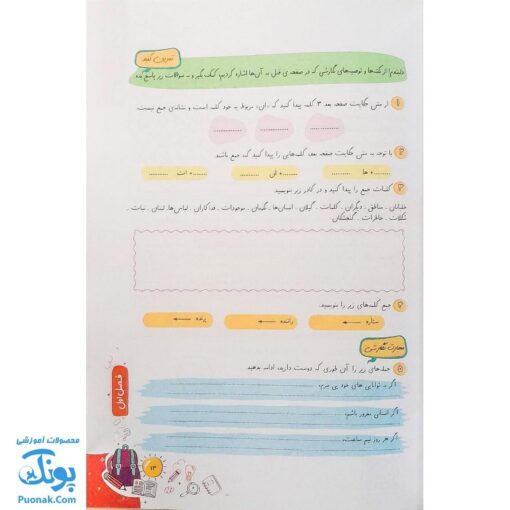 تمرین کنید
دلبندم! از نکته‌ها و توصیه‌های نگارشی که در صفحه‌ی قبل به آن‌ها اشاره کردیم، کمک بگیر و به سوالات زیر پاسخ بده
۱ از متن حکایت صفحه بعد، ۳ کلمه پیدا کنید که «ان» مربوط به خود کلمه است و نشانه‌ی جمع نیست.
............ ............ ............
۲ با توجه به متن حکایت صفحه بعد، کلمه‌هایی را پیدا کنید که جمع باشند.
........+ ها .......... ........+ ان .......... ........+ ات ..........
۳ کلمات جمع را پیدا کنید و در کادر زیر بنویسید.
خیابان ـ مناطق ـ دیگران ـ کلمات ـ گیلان ـ انسان‌ها ـ نگهبان ـ موجودات ـ فداکاران ـ لباس‌ها ـ لبنان ـ نبات ـ
شکلات ـ خاطرات ـ گنجشکان
۴ جمع کلمه‌های زیر را بنویسید.
ستاره راننده پرنده
مهارت نگارشی
۵ جمله‌های زیر را آن طوری که دوست دارید، ادامه بدهید.
اگر به توانایی های خود پی ببرم،
اگر انسانی مغرور باشم،
اگر هر روز نیم ساعت،
فصل اول
۱۳
محصولات آموزشی
پونک
Puonak.Com